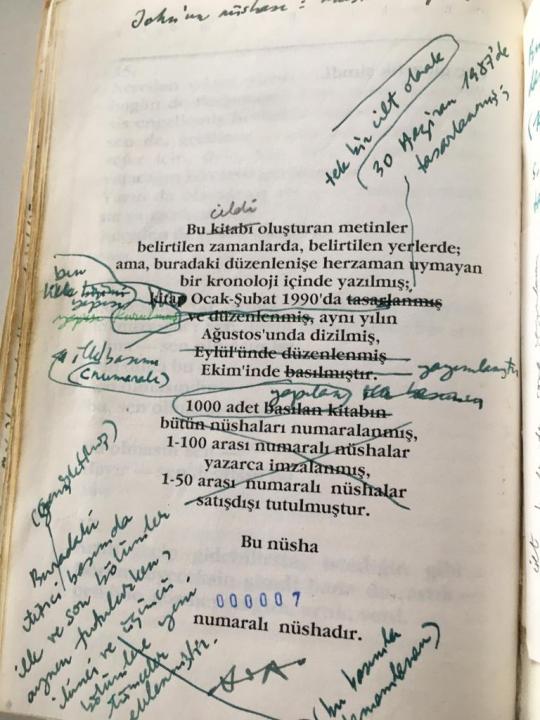 John'un nüshası :
tek bir cilt olarak
30 Haziran 1987'de
tasarlanmış;
cildi
Bu kitabı oluşturan metinler
belirtilen zamanlarda, belirtilen yerlerde;
ama, buradaki düzenlenişe herzaman uymayan
bir kronoloji içinde yazılmış;
kitap Ocak-Şubat 1990'da tasarlanmış
ve düzenlenmiş, aynı yılın
Ağustos'unda dizilmiş,
Eylül'ünde düzenlenmiş
Ekim'inde basılmıştır.
yayımlanmıştır
ilk basımı
(numaralı)
yapılan
1000 adet basılan kitabın
bütün nüshaları numaralanmış,
1-100 arası numaralı nüshalar
yazarca imzalanmış,
1-50 arası numaralı nüshalar
satışdışı tutulmuştur.
(Genişletilmiş)
Buradaki
basımda
ilk ve son bölümler
aynen tutulurken,
ikinci ve üçüncü
bölümlere yeni
eklenmiştir.
Bu nüsha
000007
numaralı nüshadır.
(bu basımda